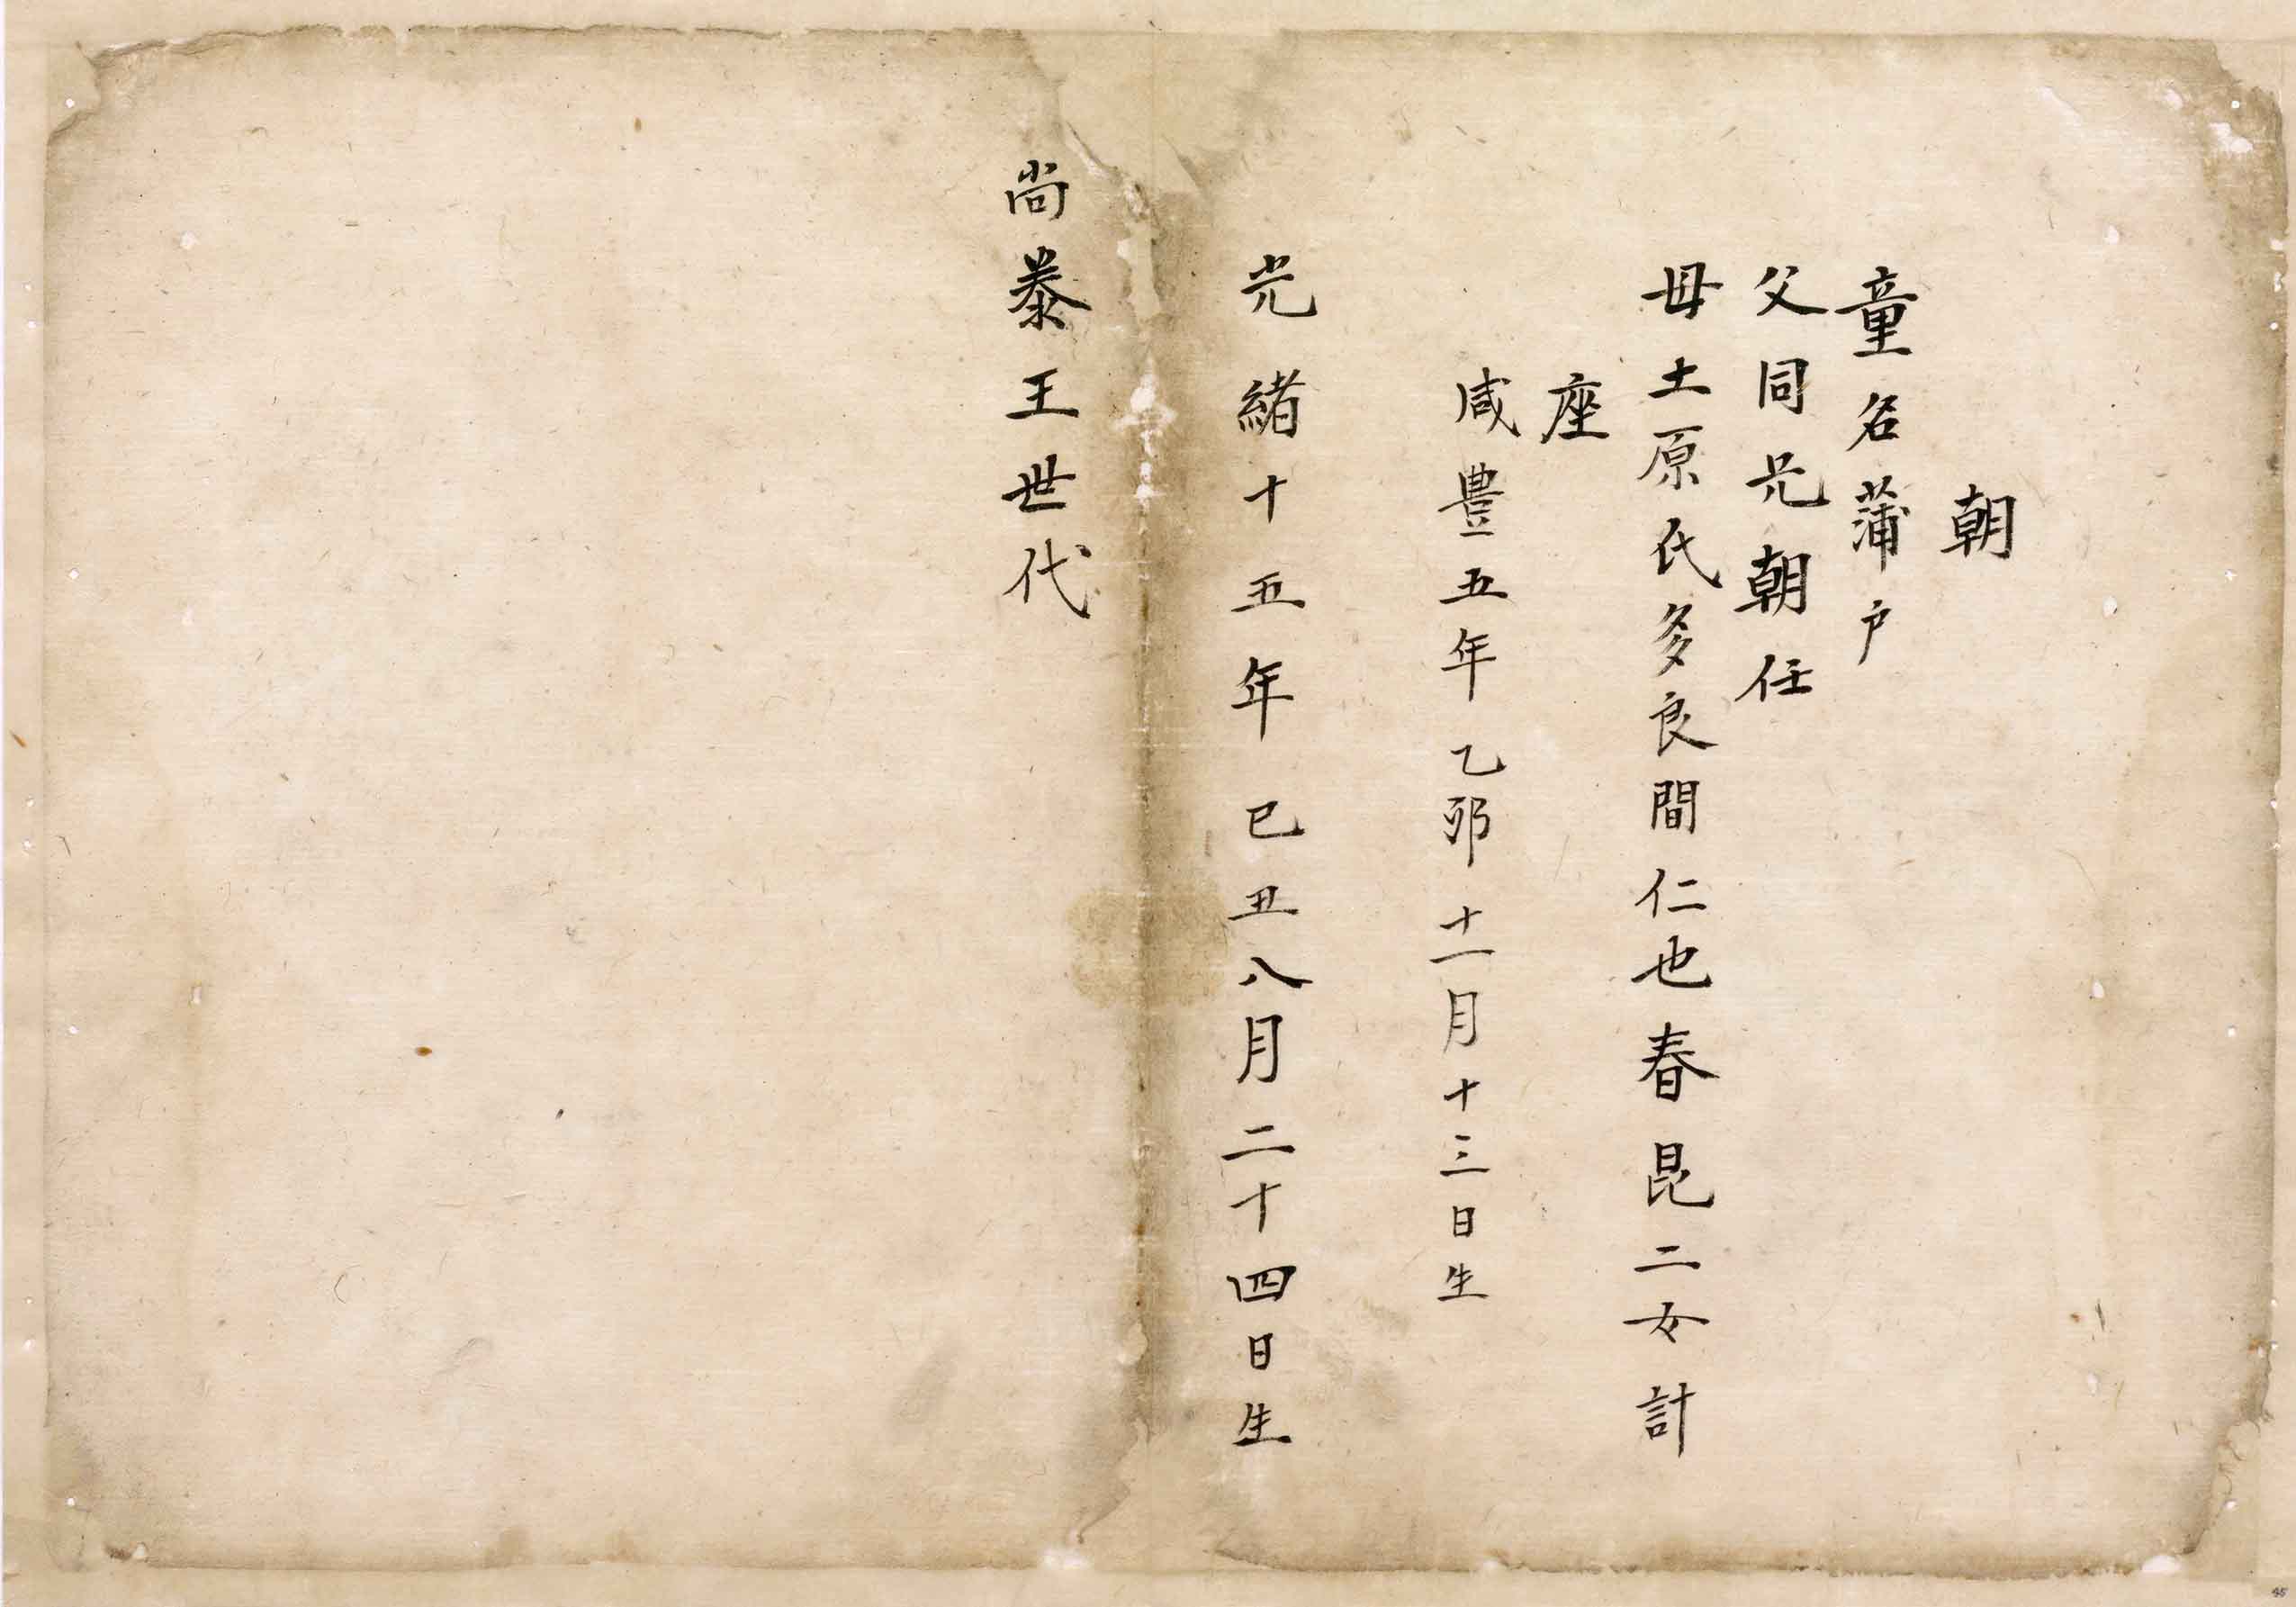 朝
童名蒲戸
父同元朝任
母土原氏多良間仁也春昆二女計
座
咸豊五年乙卯十一月十三日生
光緒十五年已丑八月二十四日生
尚泰王世代
45